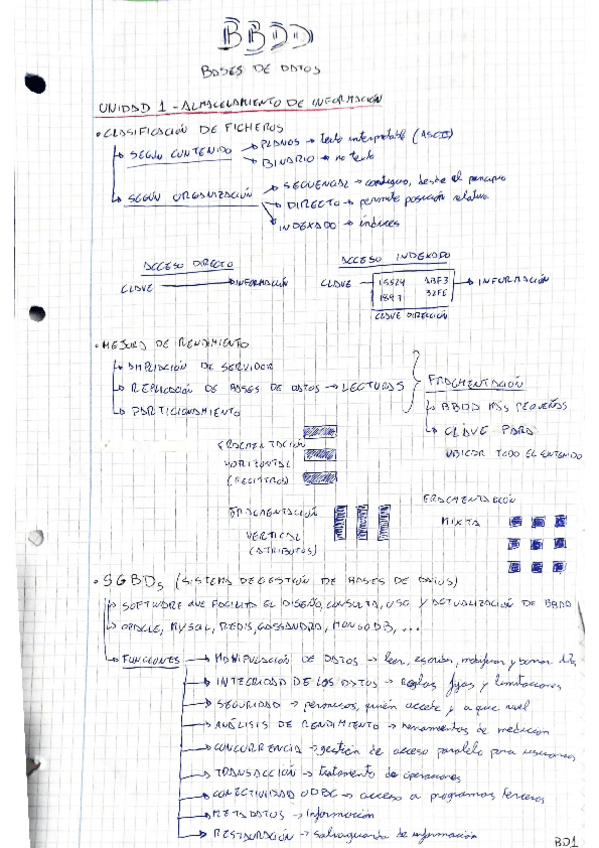 BBDD
BASES DE DATOS
UNIDAD 1 - ALMACENAMIENTO DE INFORMACIÓN
• CLASIFICACIÓN DE FICHEROS
↳ SEGÚN CONTENIDO → PLANOS → texto interpretable (ASCII)
→ BINARIO → no texto
↳ SEGÚN ORGANIZACIÓN → SECUENCIAL → contiguo, desde el principio
→ DIRECTO → permite posición relativa
→ INDEXADO → índices
ACCESO DIRECTO
CLAVE → INFORMACIÓN
ACCESO INDEXADO
CLAVE 15524 ABF3 → INFORMACIÓN
1897 32FE
CLAVE DIRECCIÓN
• MEJORA DE RENDIMIENTO
↳ AMPLIACIÓN DE SERVIDOR
↳ REPLICACIÓN DE BASES DE DATOS → LECTURAS
↳ PARTICIONAMIENTO
FRAGMENTACIÓN
↳ BBDD MÁS PEQUEÑAS
↳ CLAVE PARA
UBICAR TODO EL CONTENIDO
FRAGMENTACIÓN
HORIZONTAL
(REGISTROS)
FRAGMENTACIÓN
VERTICAL
(ATRIBUTOS)
FRAGMENTACIÓN
MIXTA
• SGBDs (SISTEMA DE GESTIÓN DE BASES DE DATOS)
↳ SOFTWARE QUE FACILITA EL DISEÑO, CONSULTA, USO Y ACTUALIZACIÓN DE BBDD
↳ ORACLE, MYSQL, REDIS, CASSANDRA, MONGODB, ...
↳ FUNCIONES → MANIPULACIÓN DE DATOS → leer, escribir, modificar y borrar
→ INTEGRIDAD DE LOS DATOS → Reglas fijas y limitaciones
→ SEGURIDAD → permisos, quién accede y a que nivel
→ ANÁLISIS DE RENDIMIENTO → herramientas de medición
→ CONCURRENCIA → gestión de acceso paralelo para usuarios
→ TRANSACCIÓN → tratamiento de operaciones
→ CONECTIVIDAD ODBC → acceso a programas terceros
→ METADATOS → Información
→ RESTAURACIÓN → salvaguarda de información
BD1